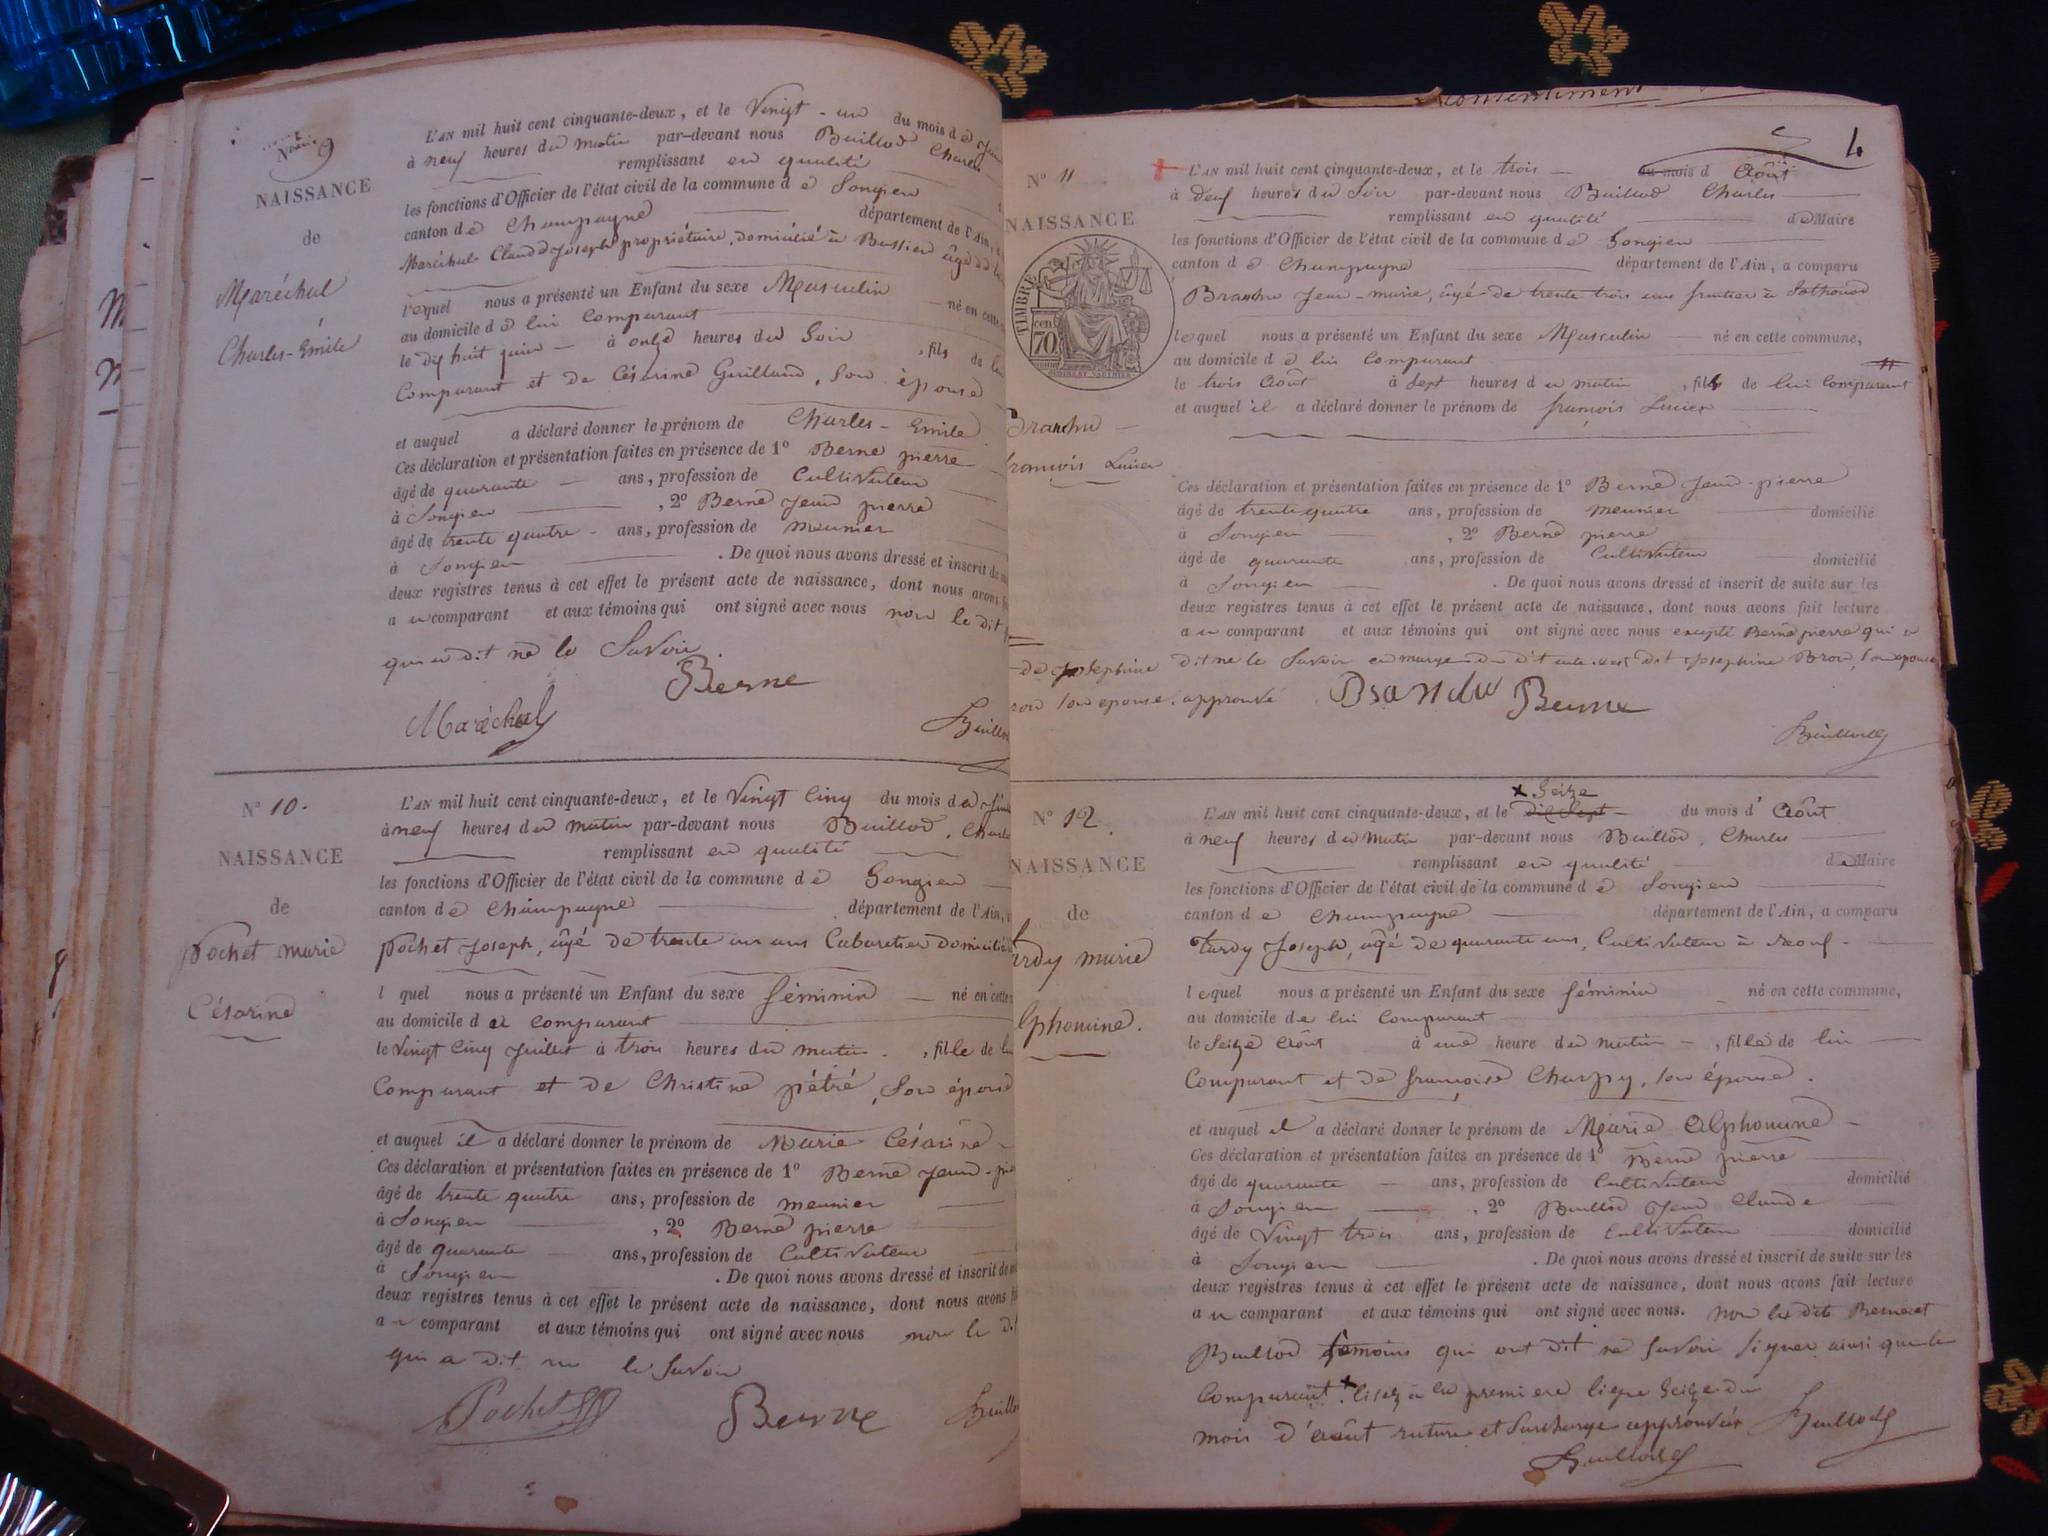 Numéro 9
NAISSANCE
de
Maréchal
Charles-Emile
L'AN mil huit cent cinquante-deux, et le Vingt-un du mois de
à neuf heures du matin par-devant nous Buillod Charles
remplissant en qualité
les fonctions d'Officier de l'état civil de la commune de Songieu
canton de Champagne département de l'Ain,
Maréchal Claude Joseph propriétaire, domicilié à Bassieu âgé de
lequel nous a présenté un Enfant du sexe Masculin né en cette
au domicile de lui Comparant
le dix huit juin à onze heures du Soir, fils de lui
Comparant et de Césarine Guilland, Son épouse
et auquel a déclaré donner le prénom de Charles-Emile
Ces déclaration et présentation faites en présence de 1º Berne pierre
âgé de quarante ans, profession de Cultivateur
à Songieu, 2º Berne Jean pierre
âgé de trente quatre ans, profession de meunier
à Songieu. De quoi nous avons dressé et inscrit de
deux registres tenus à cet effet le présent acte de naissance, dont nous avons
au comparant et aux témoins qui ont signé avec nous non le dit
qui a dit ne le Savoir
Berne
Maréchal
Buillod
Nº 10.
NAISSANCE
de
Pochet marie
Césarine
L'AN mil huit cent cinquante-deux, et le Vingt Cinq du mois de
à neuf heures du matin par-devant nous Buillod, Charles
remplissant en qualité
les fonctions d'Officier de l'état civil de la commune de Songieu
canton de Champagne département de l'Ain,
Pochet Joseph, âgé de trente un ans Cabaretier domicilié
l quel nous a présenté un Enfant du sexe féminin né en cette
au domicile du Comparant
le Vingt Cinq Juillet à trois heures du matin, fille de lui
Comparant et de Christine pétré, Son épouse
et auquel il a déclaré donner le prénom de Marie Césarine
Ces déclaration et présentation faites en présence de 1º Berne Jean-pie
âgé de trente quatre ans, profession de meunier
à Songieu, 2º Berne pierre
âgé de quarante ans, profession de Cultivateur
à Songieu. De quoi nous avons dressé et inscrit de
deux registres tenus à cet effet le présent acte de naissance, dont nous avons
au comparant et aux témoins qui ont signé avec nous non le dit
qui a dit ne le Savoir
Pochet
Berne
Buillod
consentement
4
Nº 11
NAISSANCE
TIMBRE
70 cen
Brandu
françois Lucien
L'AN mil huit cent cinquante-deux, et le trois du mois d Août
à Deux heures du Soir par-devant nous Buillod Charles
remplissant en qualité de Maire
les fonctions d'Officier de l'état civil de la commune de Songieu
canton de Champagne département de l'Ain, a comparu
Brandu Jean-marie, âgé de trente trois ans fruitier à Sothonod
lequel nous a présenté un Enfant du sexe Masculin né en cette commune,
au domicile de lui Comparant
le trois Août à Sept heures du matin, fils de lui Comparant
et auquel il a déclaré donner le prénom de françois Lucien
Ces déclaration et présentation faites en présence de 1º Berne Jean-pierre
âgé de trente quatre ans, profession de meunier domicilié
à Songieu, 2º Berne pierre
âgé de quarante ans, profession de Cultivateur domicilié
à Songieu. De quoi nous avons dressé et inscrit de suite sur les
deux registres tenus à cet effet le présent acte de naissance, dont nous avons fait lecture
au comparant et aux témoins qui ont signé avec nous excepté Berne pierre qui a
dit ne le Savoir en marge du dit acte est dit Josephine Bron, Son épouse
de Josephine
ron son épouse. approuvé
Brandu Berne
Buillod
Nº 12.
NAISSANCE
de
ardy marie
lphonsine.
Seize
L'AN mil huit cent cinquante-deux, et le dix Sept du mois d' Août
à neuf heures du matin par-devant nous Buillod, Charles
remplissant en qualité de Maire
les fonctions d'Officier de l'état civil de la commune de Songieu
canton de Champagne département de l'Ain, a comparu
Tardy Joseph, âgé de quarante ans, Cultivateur à
lequel nous a présenté un Enfant du sexe féminin né en cette commune,
au domicile de lui Comparant
le Seize Août à une heure du matin, fille de lui
Comparant et de françoise Charpy, Son épouse.
et auquel il a déclaré donner le prénom de Marie Alphonsine
Ces déclaration et présentation faites en présence de 1º Berne pierre
âgé de quarante ans, profession de Cultivateur domicilié
à Songieu, 2º Buillod Jean Claude
âgé de Vingt trois ans, profession de Cultivateur domicilié
à Songieu. De quoi nous avons dressé et inscrit de suite sur les
deux registres tenus à cet effet le présent acte de naissance, dont nous avons fait lecture
au comparant et aux témoins qui ont signé avec nous. Non les dits Berne et
Buillod témoins qui ont dit ne Savoir Signer ainsi que le
Comparant. lisez à la première ligne Seize du
mois d'août rature et Surcharge approuvées Buillod
Buillod